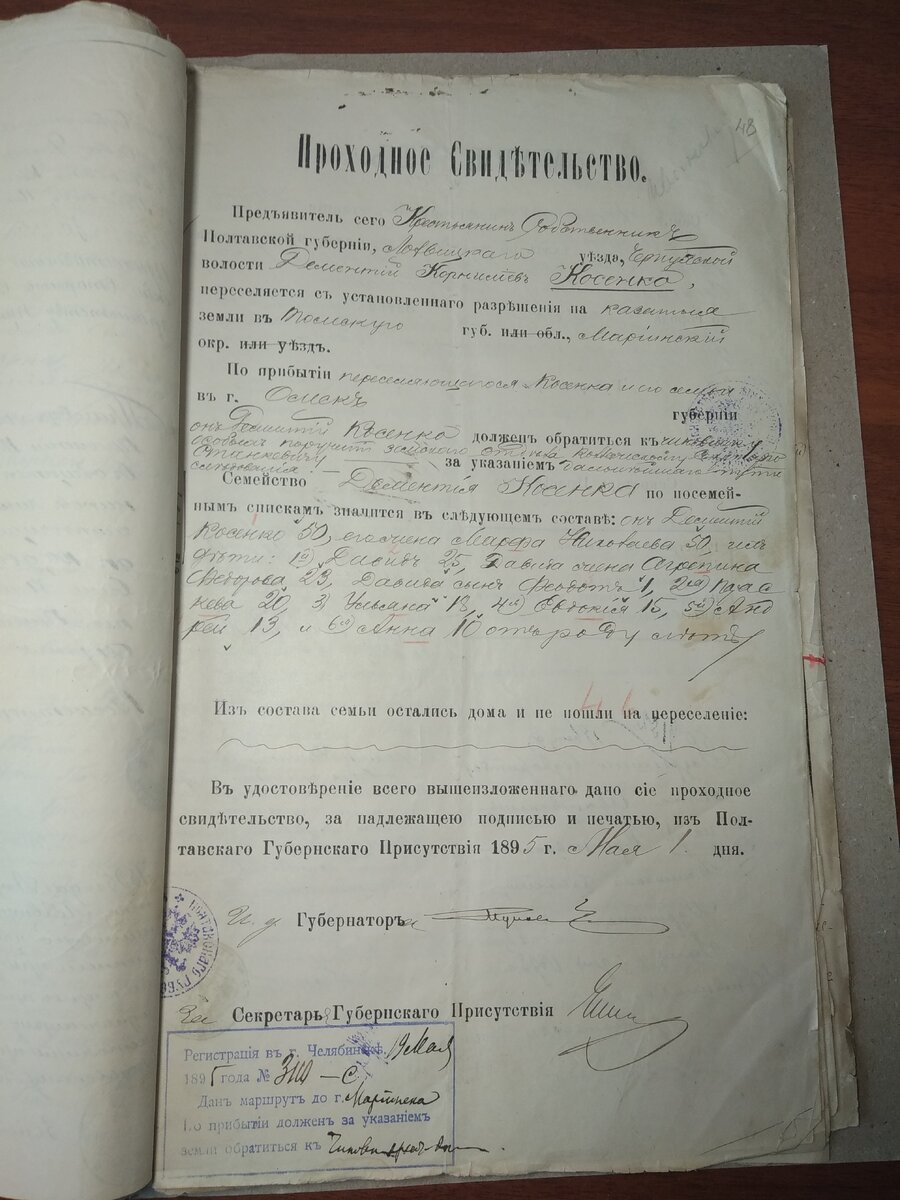 48
Проходное Свидѣтельство.
Предъявитель сего Крестьянинъ Собственникъ
Полтавской губерніи, Лохвицкаго уѣзда,
волости Дементій Корниліевъ Косенко,
переселяется съ установленнаго разрѣшенія на казенныя
земли въ Томскую губ. или обл., Маріинскій
окр. или уѣздъ.
По прибытіи переселяющагося Косенка и его семьи
въ г. Омскъ губерніи
онъ Дементій Косенко долженъ обратиться къ чиновнику
особыхъ порученій земскаго отдѣла
Станкевичу за указаніемъ дальнѣйшаго пути
слѣдованія.
Семейство Дементія Косенка по посемей-
нымъ спискамъ значится въ слѣдующемъ составѣ: онъ Дементій
Косенко 50, его жена Марфа Николаева 50, ихъ
дѣти: 1й) Давидъ 25, Давида жена Агрепина
Федорова 23, Давида сынъ Феодотъ 1, 2ая) Парас
кева 20, 3 Ульяна 18, 4я) Евдокія 15, 5й) Анд
рей 13, и 6я) Анна 10 отъ роду лѣтъ
Изъ состава семьи остались дома и не пошли на переселеніе:
Въ удостовѣреніе всего вышеизложеннаго дано сіе проходное
свидѣтельство, за надлежащею подписью и печатью, изъ Пол-
тавскаго Губернскаго Присутствія 1895 г. Мая 1 дня.
И. д. Губернатора
За Секретаря Губернскаго Присутствія
Регистрація въ г. Челябинскѣ. 19 Мая
1895 года №
Данъ маршрутъ до г. Маріинска
По прибытіи долженъ за указаніемъ
земли обратиться къ